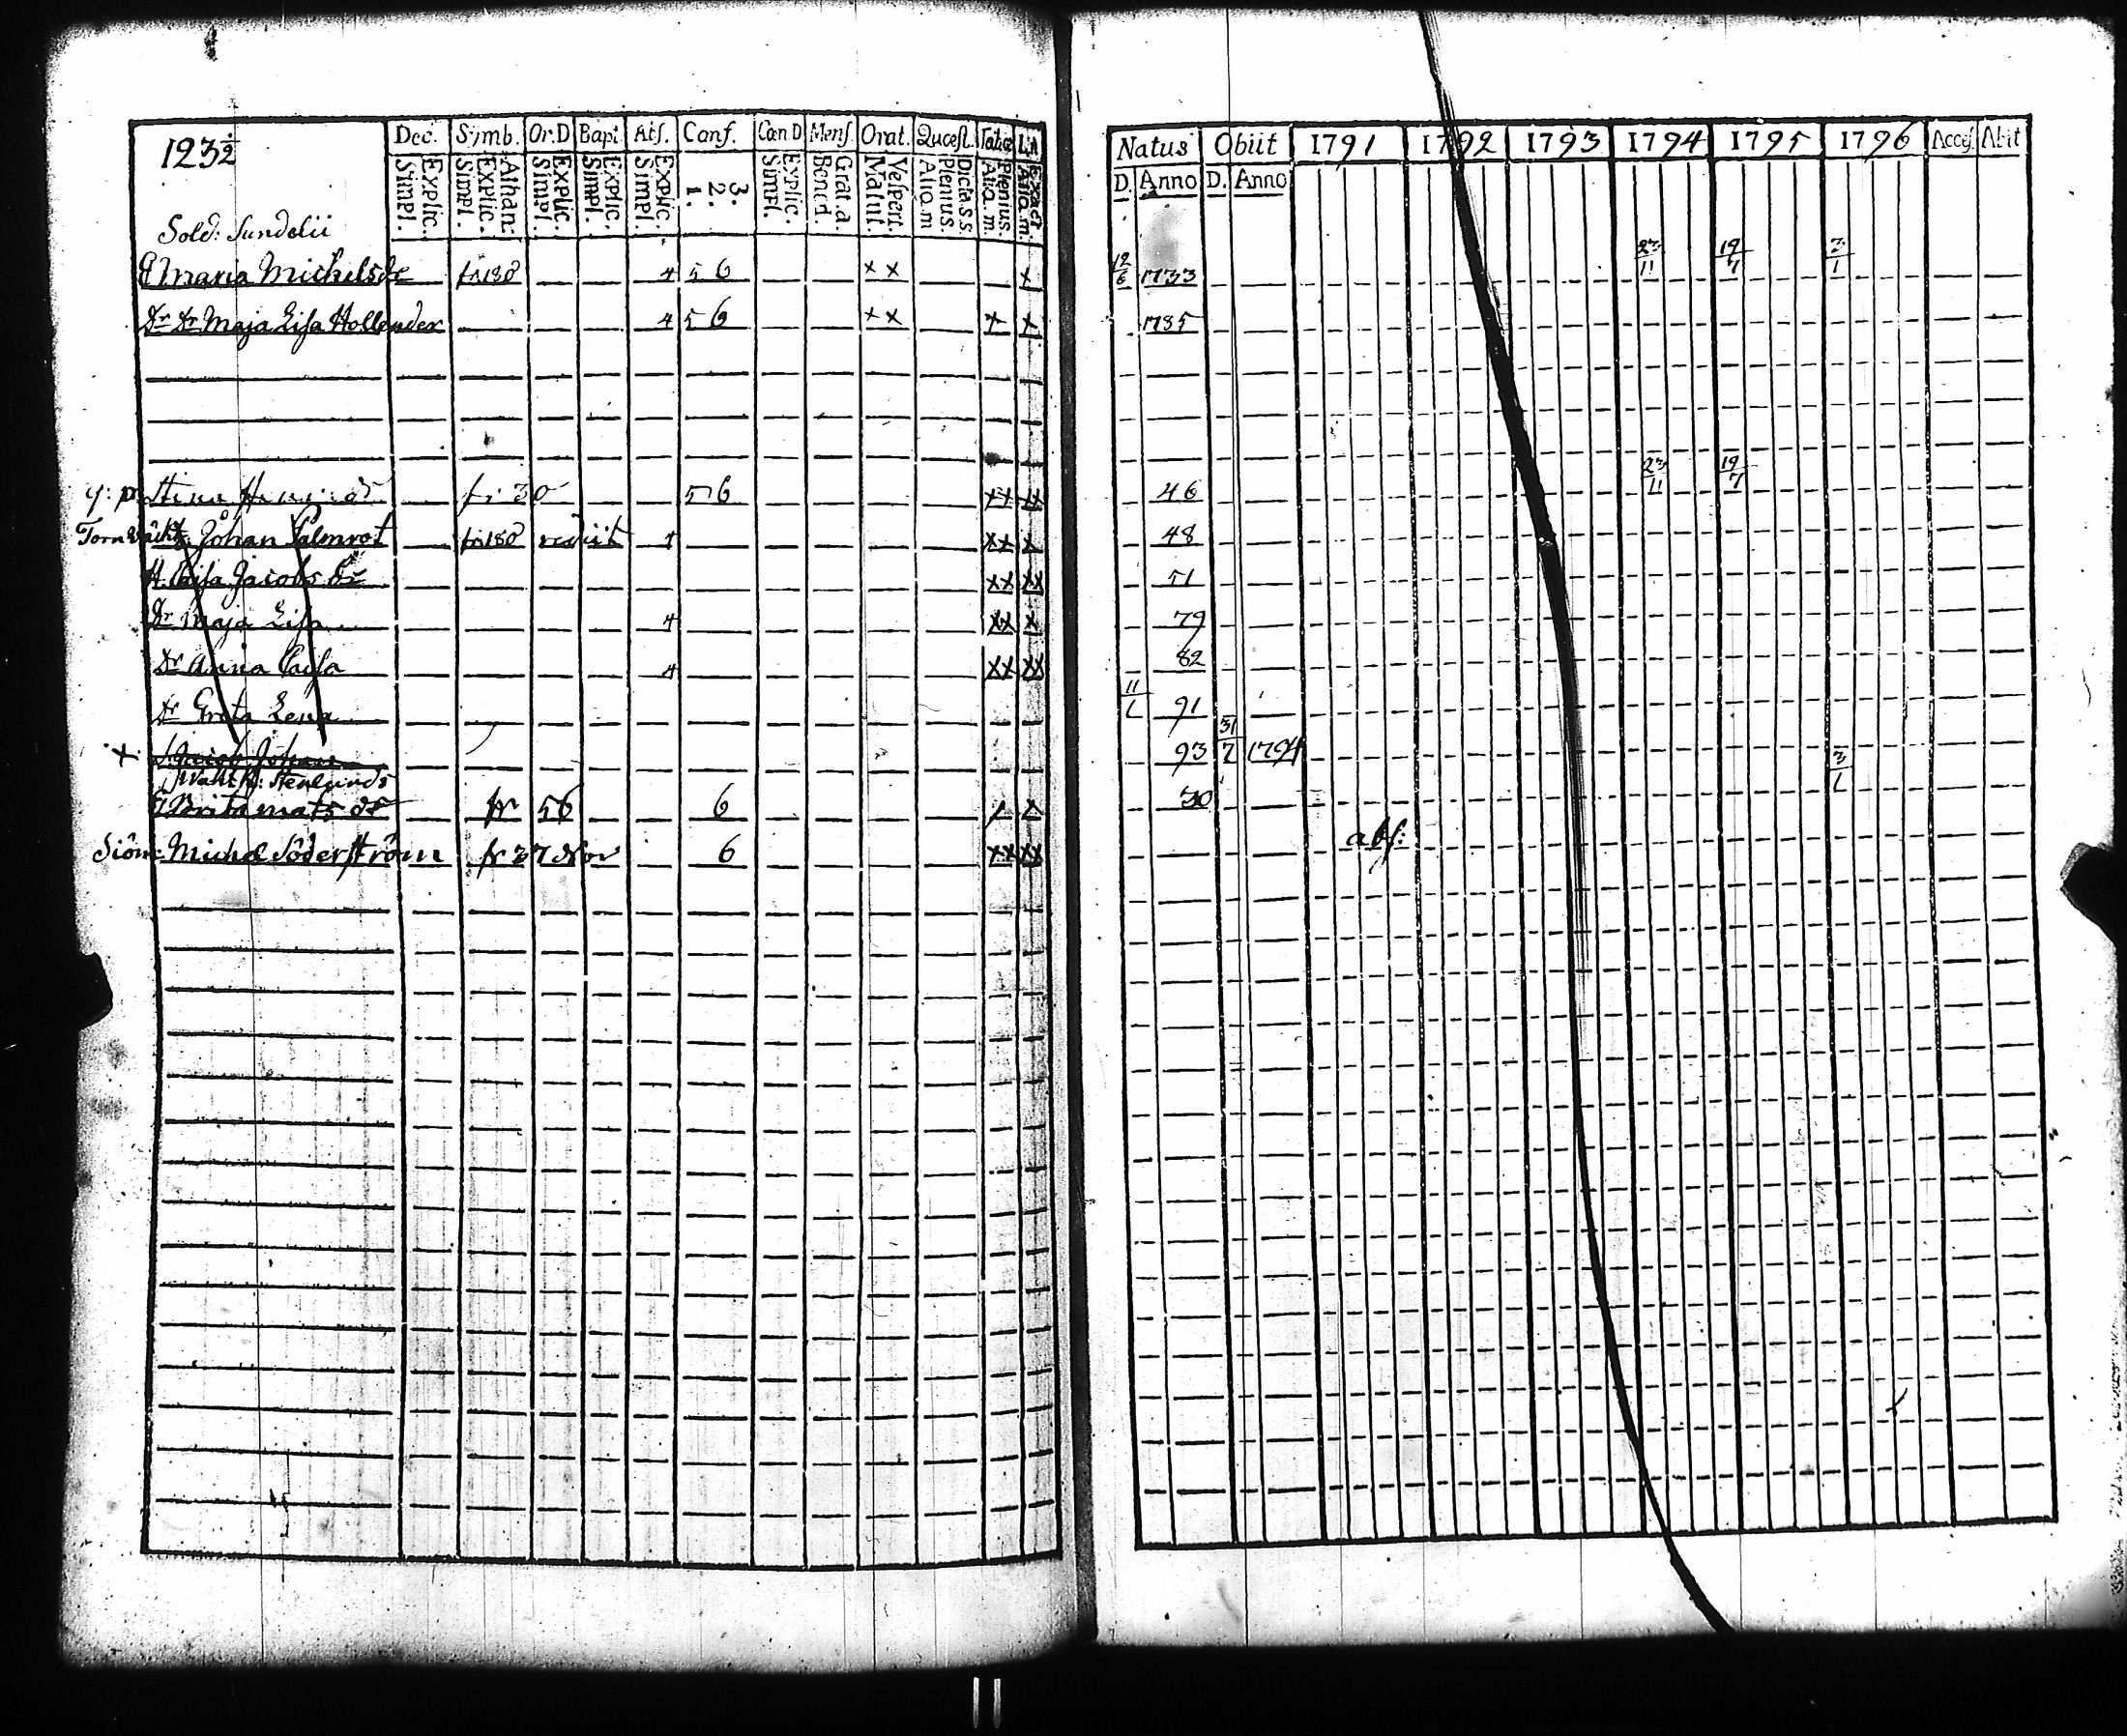 1232
Dec. Symb. Or.D Bapt. Abs. Conf. Cœn D Mens. Orat. Quæst. Tabul L.n
Explic. Simpl. Athan. Explic. Simpl. Explic. Simpl. Explic. Simpl. Explic. Simpl. 3. 2. 1. Explic. Simpl. Grat. a. Bened. Vespert. Matut. Dicta S.S. Plenius. Aliq.m Plenius. Aliq.m. Exact Aliq.m.
Sold: Sundelii
E Maria Michelsdr fr 180 4 5 6 x x x
Dr Dr Maja Lisa Hollender 4 5 6 x x x x
fr 30 5 6 xx xx
Johan Palmrot fr 180 rediit 4 xx x
H. Caisa Jacobs dr xx xx
Dr Maja Lisa 4 xx x
Dr Anna Caisa 4 xx xx
Dr Greta Lena
x S. Jacob Johan
Stenlunds
E Brita mats dr fr 56 6
Siöm: Michel Söderström fr 27 Nov 6 xx xx
Natus Obiit 1791 1792 1793 1794 1795 1796 Acces. Abit
D. Anno D. Anno
12/6 1733 23/11 19/7 3/1
1785
46 23/11 19/7
48
51
79
82
11/1 91
93 31/7 1794
30 3/1
abs: